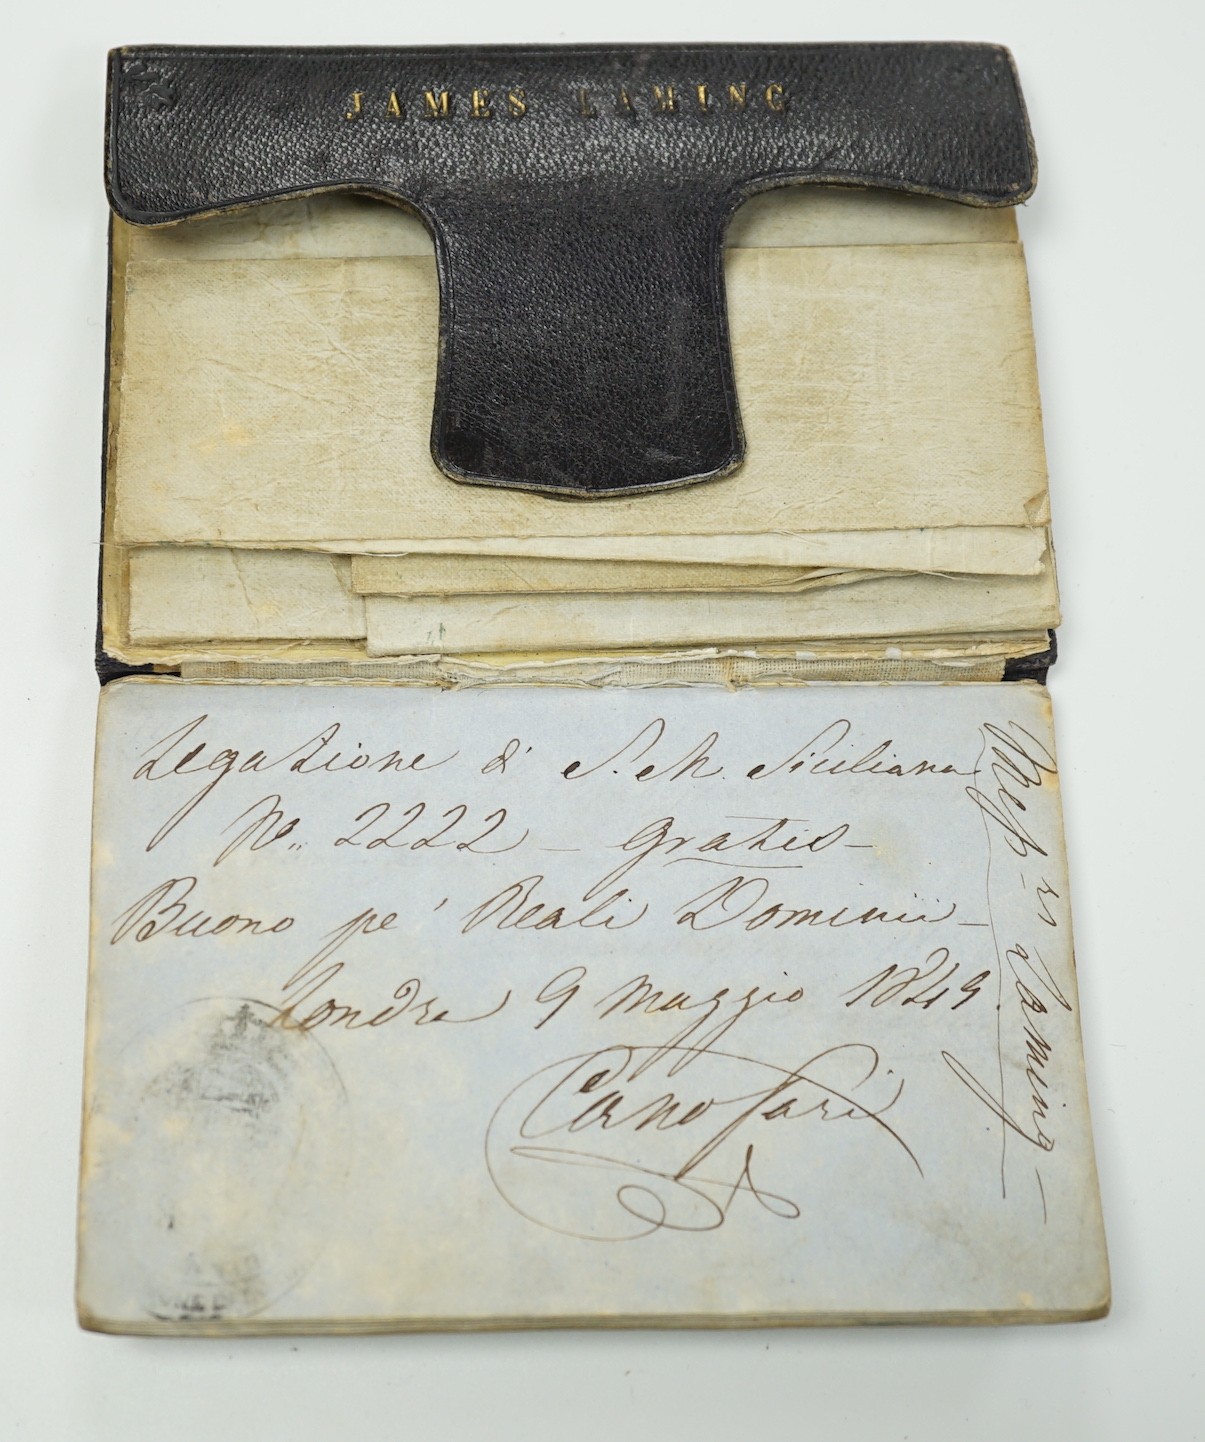 JAMES LAMING
Legazione di S. M. Siciliana
No. 2222 - Gratis -
Buono pe' Reali Dominii -
Londra 9 Maggio 1849.
Laming -